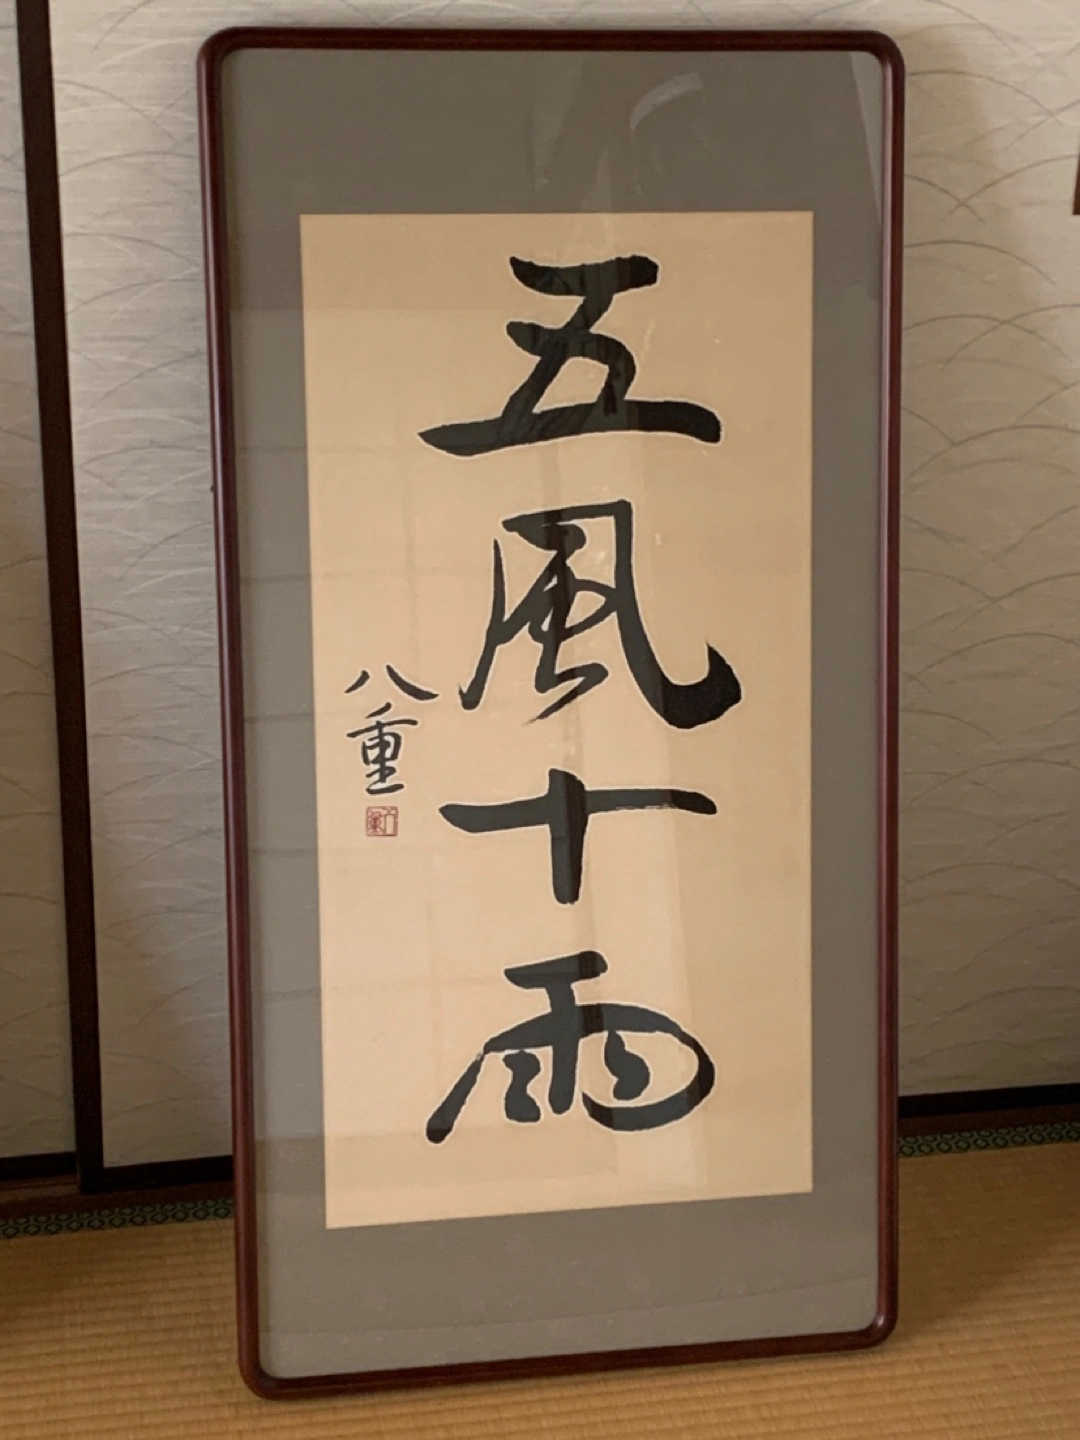 五風十雨
八重